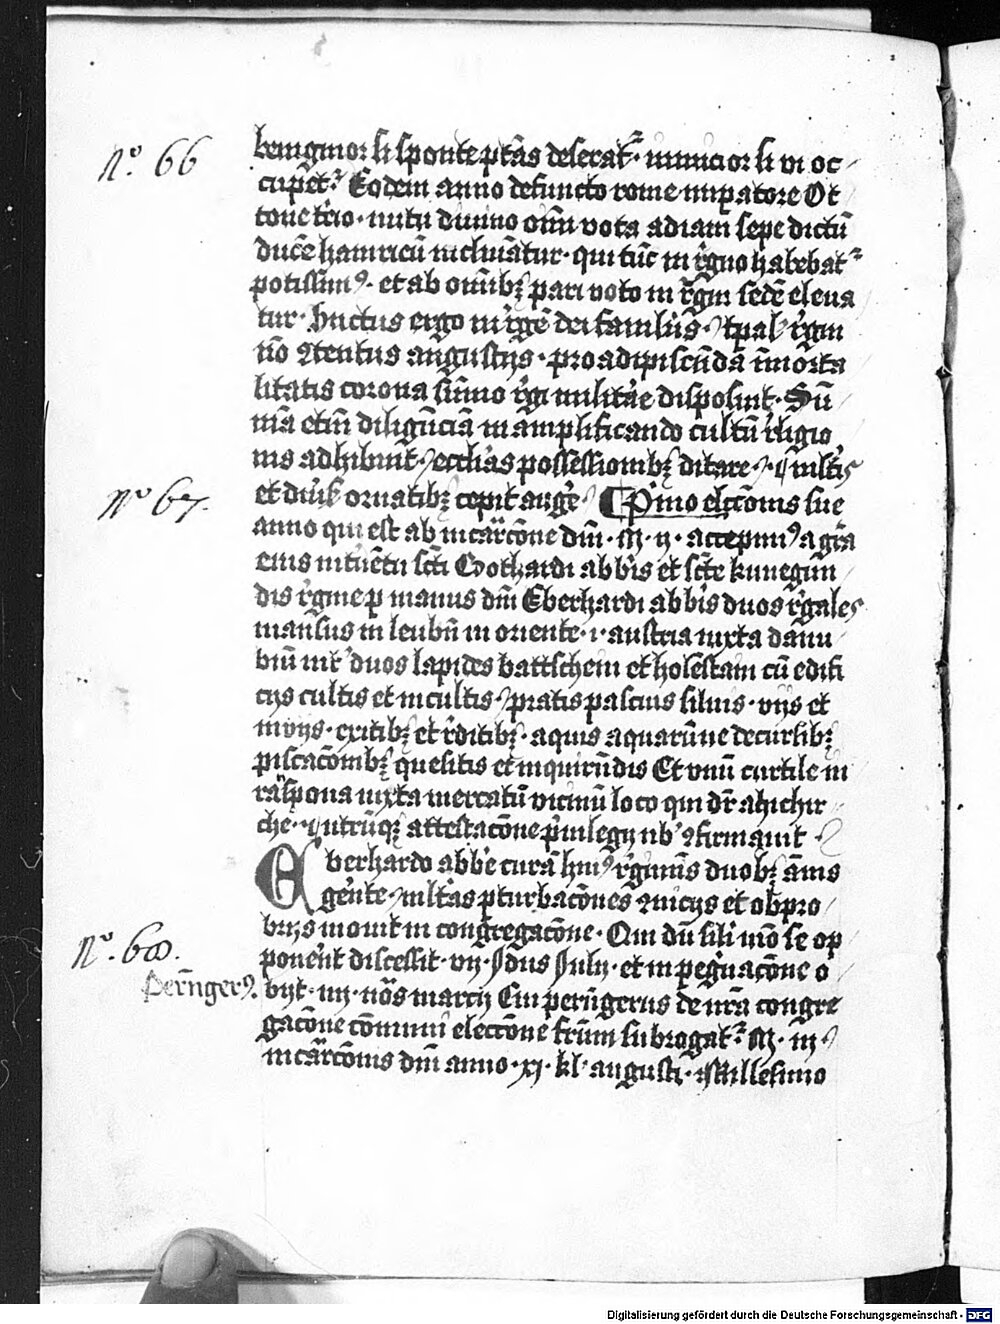 Nᵒ 66
benignior si sponte ptās deserat᷑ · inimicior si vi oc
cupet᷑ Eodem anno defuncto rome impatore Ot
tone t̄cio · nutu diuino om̄ vota ad iam sepe dictū
ducē hainricū inclinātur · qui tūc in r̄gno habebat᷑
potissimꝰ · et ab om̄ibꝫ pari voto in r̄gni sedē eleua
tur · ergo in r̄gē dei famulus · tpal' r̄gni
nō ꝯtentus angustijs · pro adipiscēda īmorta
litatis corona sūmo r̄gi militāe disposuit · Sū
mā etiā diligēciā in amplificando cultū r̄ligio
nis adhibuit · ecclīas possessionibꝫ ditare · ⁊ multis
Nᵒ 67.
et diūs ornatibꝫ cepit augē' Pimo elcc̄onis sue
anno qui est ab incār̄cōne dn̄i · M · ij · accepimꝰ a grā
eius intūetu scti Gothardi abb̄is et scte kunegun
dis r̄gine p manus dn̄i Eberhardi abb̄is duos r̄gales
mansus in leubn̄ in oriente · i · austria iuxta danu
biū int̄ duos lapides battschein et holestain cū edifi
cijs cultis et incultis · pratis pascuis siluis · vijs et
invijs · exitibꝫ et r̄ditibꝫ · aquis aquarūue decursibꝫ
piscacōnibꝫ quesitis et inquirēdis Et vnū curtile in
rāspona iuxta mercatū vicinū loco qui dr̄ ahichir
che · ⁊ utrūqꝫ attestacōne p̄uilegij nb' ꝯfirmauit
Eberhardo abbē curā huiꝰ r̄giminis duobꝫ ānis
gēnte · mltās pturbacōnes ꝯuicijs et obpro
Nᵒ. 68.
brijs mouit in congregacōne · Qui dū sili mō se op
ponerēt discessit · vij · Jdus Julij · et in peg̅nacōne o
Pern̄gerꝰ.
bijt · iiij · nōs marcij Cui pern̄gerus de nr̄a congre
gacōne cōmuni elecc̄one fr̄um subrogat᷑ M · iij
incār̄cōnis dn̄i anno · xj · kl' augusti · Millesimo
Digitalisierung gefördert durch die Deutsche Forschungsgemeinschaft - DFG